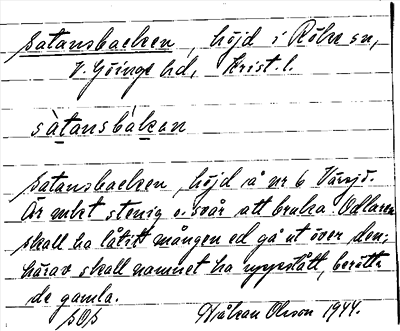 Satansbacken, höjd i Röke sn,
V. Göinge hd, Krist. l.
sàtansbákan
Satansbacken, höjd å nr 6 Värsjö.
Är mkt stenig o. svår att bruka. Odlaren
skall ha låtit mången ed gå ut över den;
härav skall namnet ha uppstått, berätta
de gamla.
Håkan Olsson 1944.